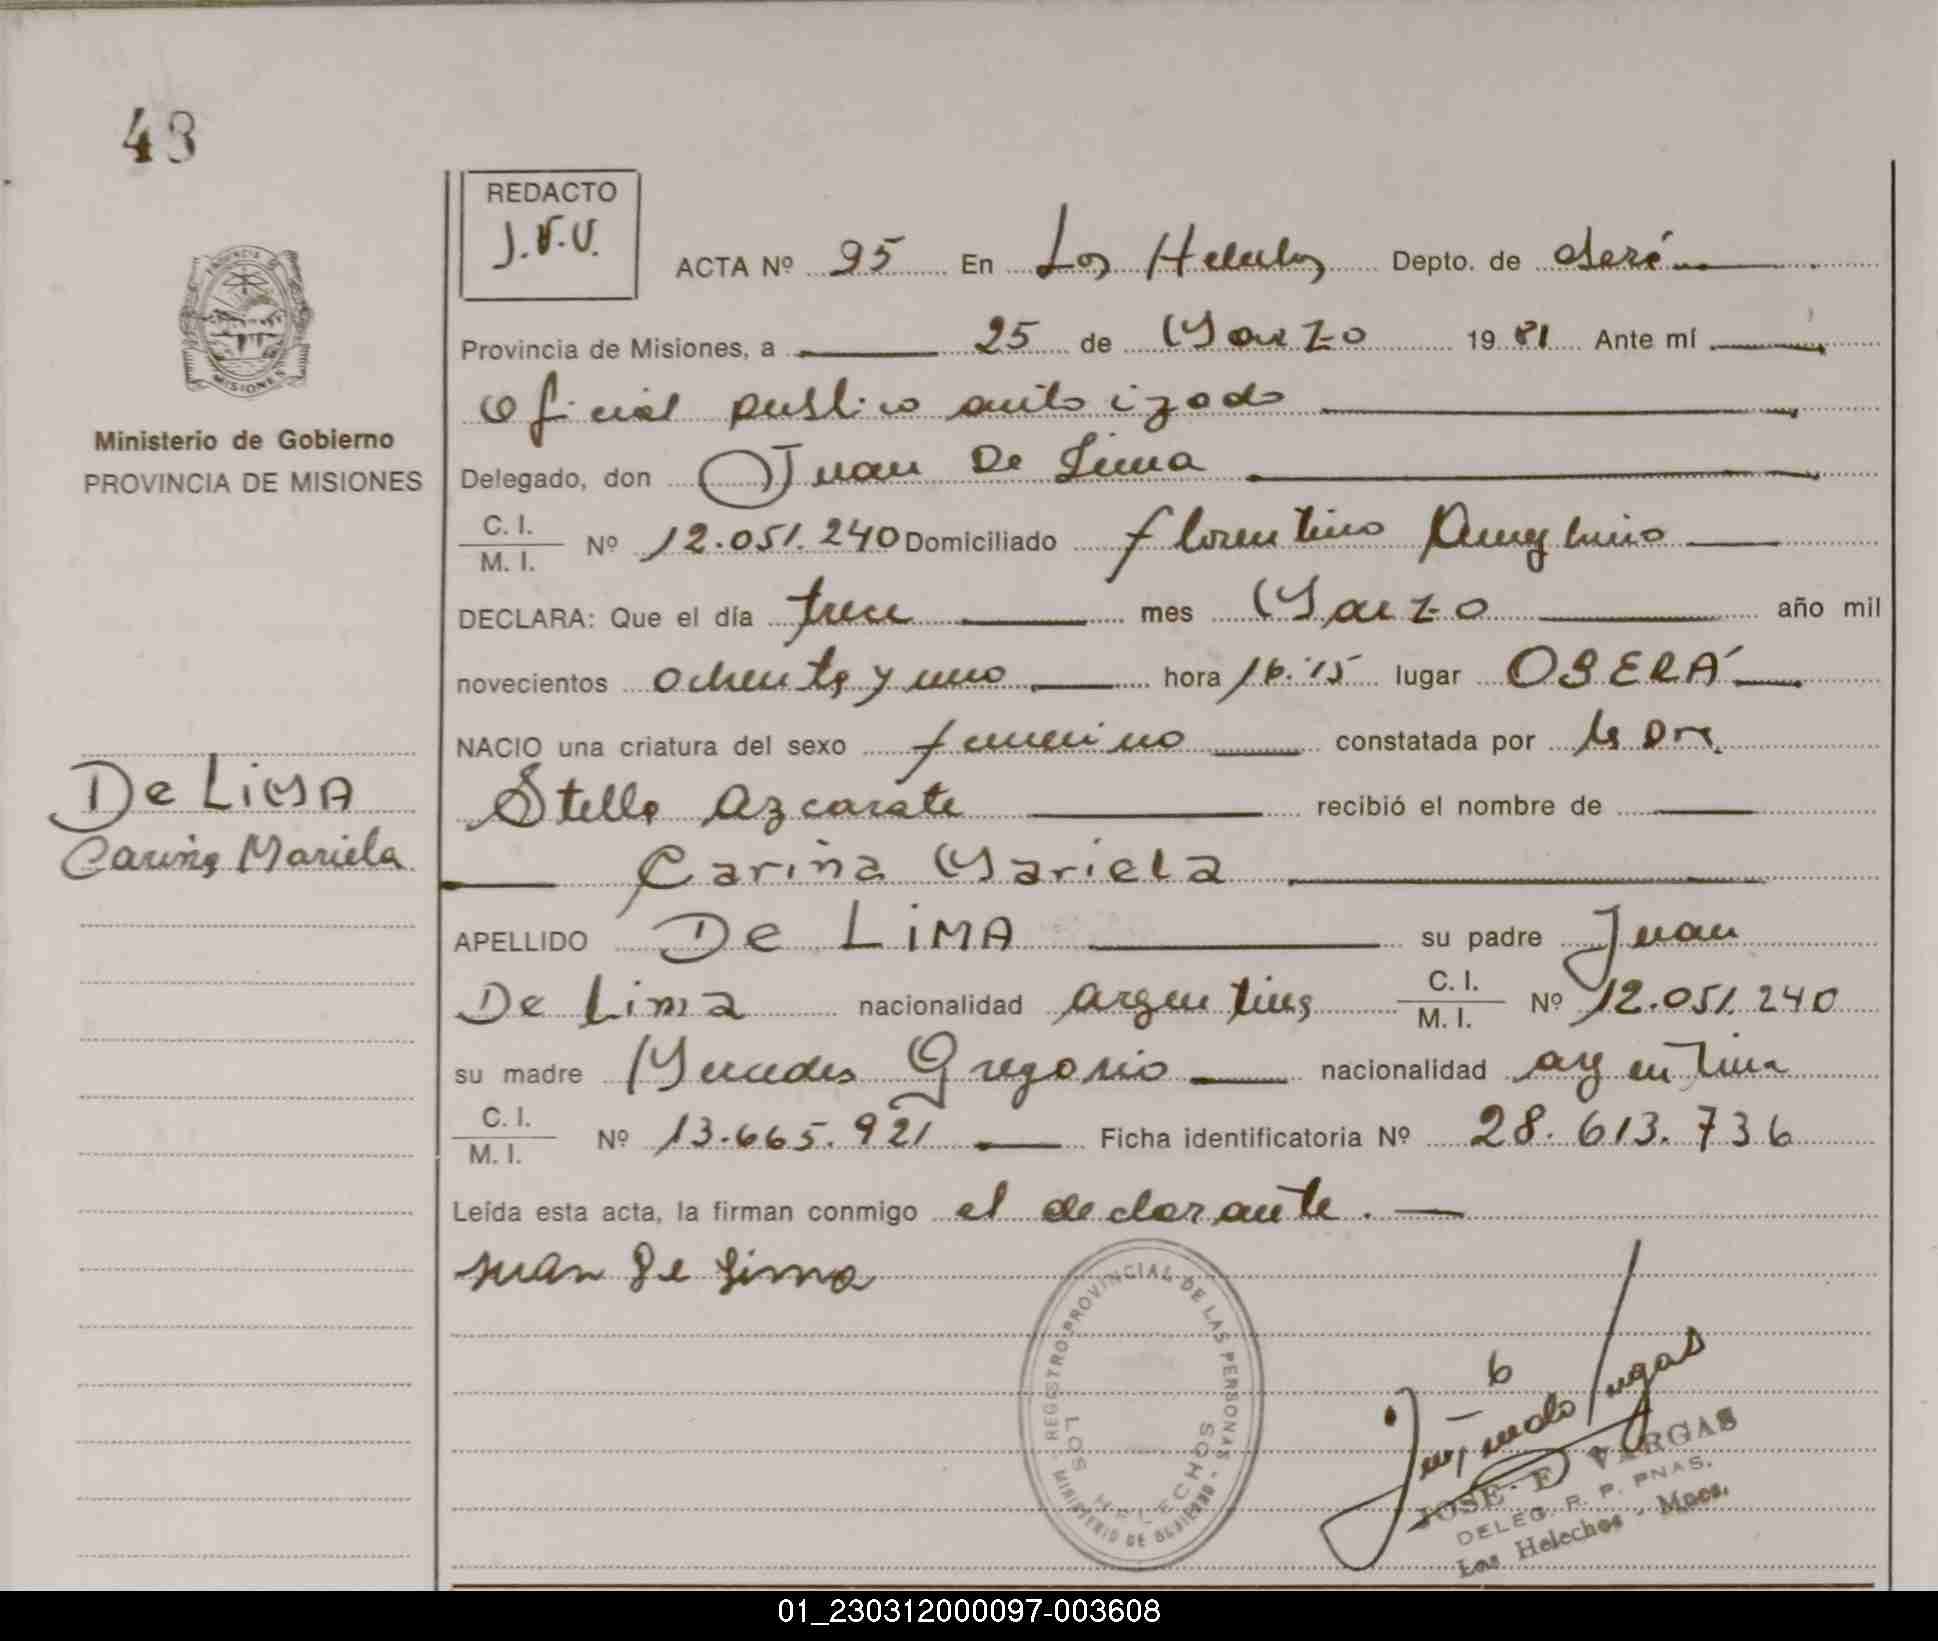 43
REDACTO
J.V.V.
ACTA Nº 95 En Los Helechos Depto. de Oberá
Provincia de Misiones, a 25 de Marzo 1981 Ante mí
Oficial publico autorizado
Delegado, don Juan De Lima
C. I.
M. I. Nº 12.051.240 Domiciliado florentino Ameghino
DECLARA: Que el día trece mes Marzo año mil
novecientos ochenta y uno hora 16:15 lugar OBERÁ
NACIO una criatura del sexo femenino constatada por la Dra
Stella Azcarate recibió el nombre de
Carina Mariela
APELLIDO De LiMA su padre Juan
De Lima nacionalidad argentina C. I.
M. I. Nº 12.051.240
su madre Mercedes Gregorio nacionalidad argentina
C. I.
M. I. Nº 13.665.921 Ficha identificatoria Nº 28.613.736
Leída esta acta, la firman conmigo el declarante.
Juan De Lima
PROVINCIA DE
MISIONES
Ministerio de Gobierno
PROVINCIA DE MISIONES
De LiMA
Carina Mariela
REGISTRO PROVINCIAL DE LAS PERSONAS
LOS HELECHOS
MINISTERIO DE GOBIERNO
JOSE E. VARGAS
DELEG. R. P. PNAS.
Los Helechos - Mnes.
01_230312000097-003608